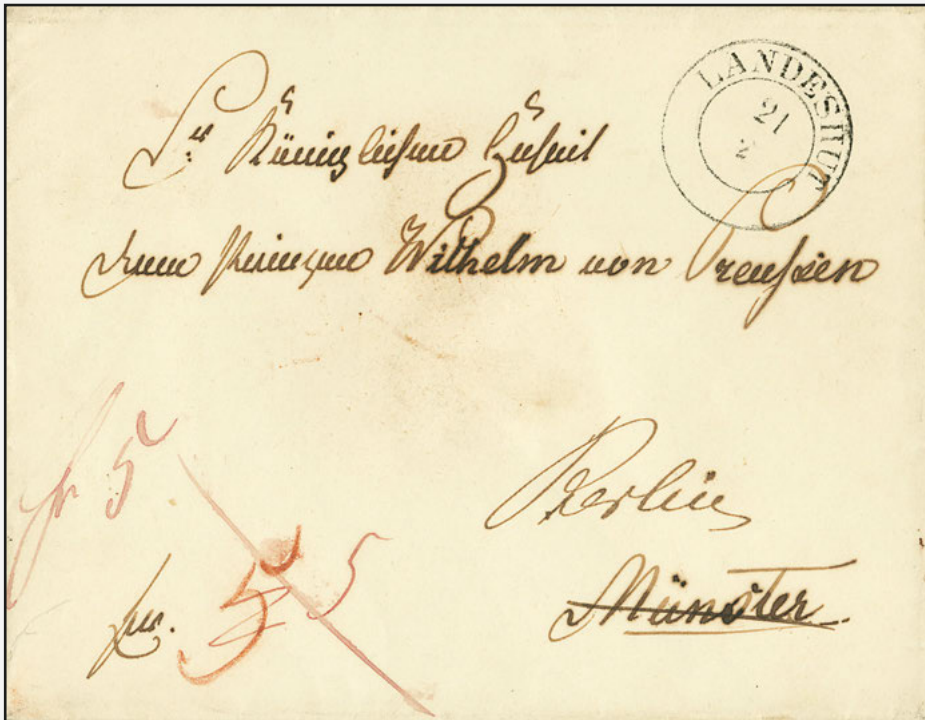 LANDESHUT
21
2
Sr Königlichen Hoheit
dem Prinzen Wilhelm von Preußen
fr 5
Berlin
fr. 5 5
Münster.